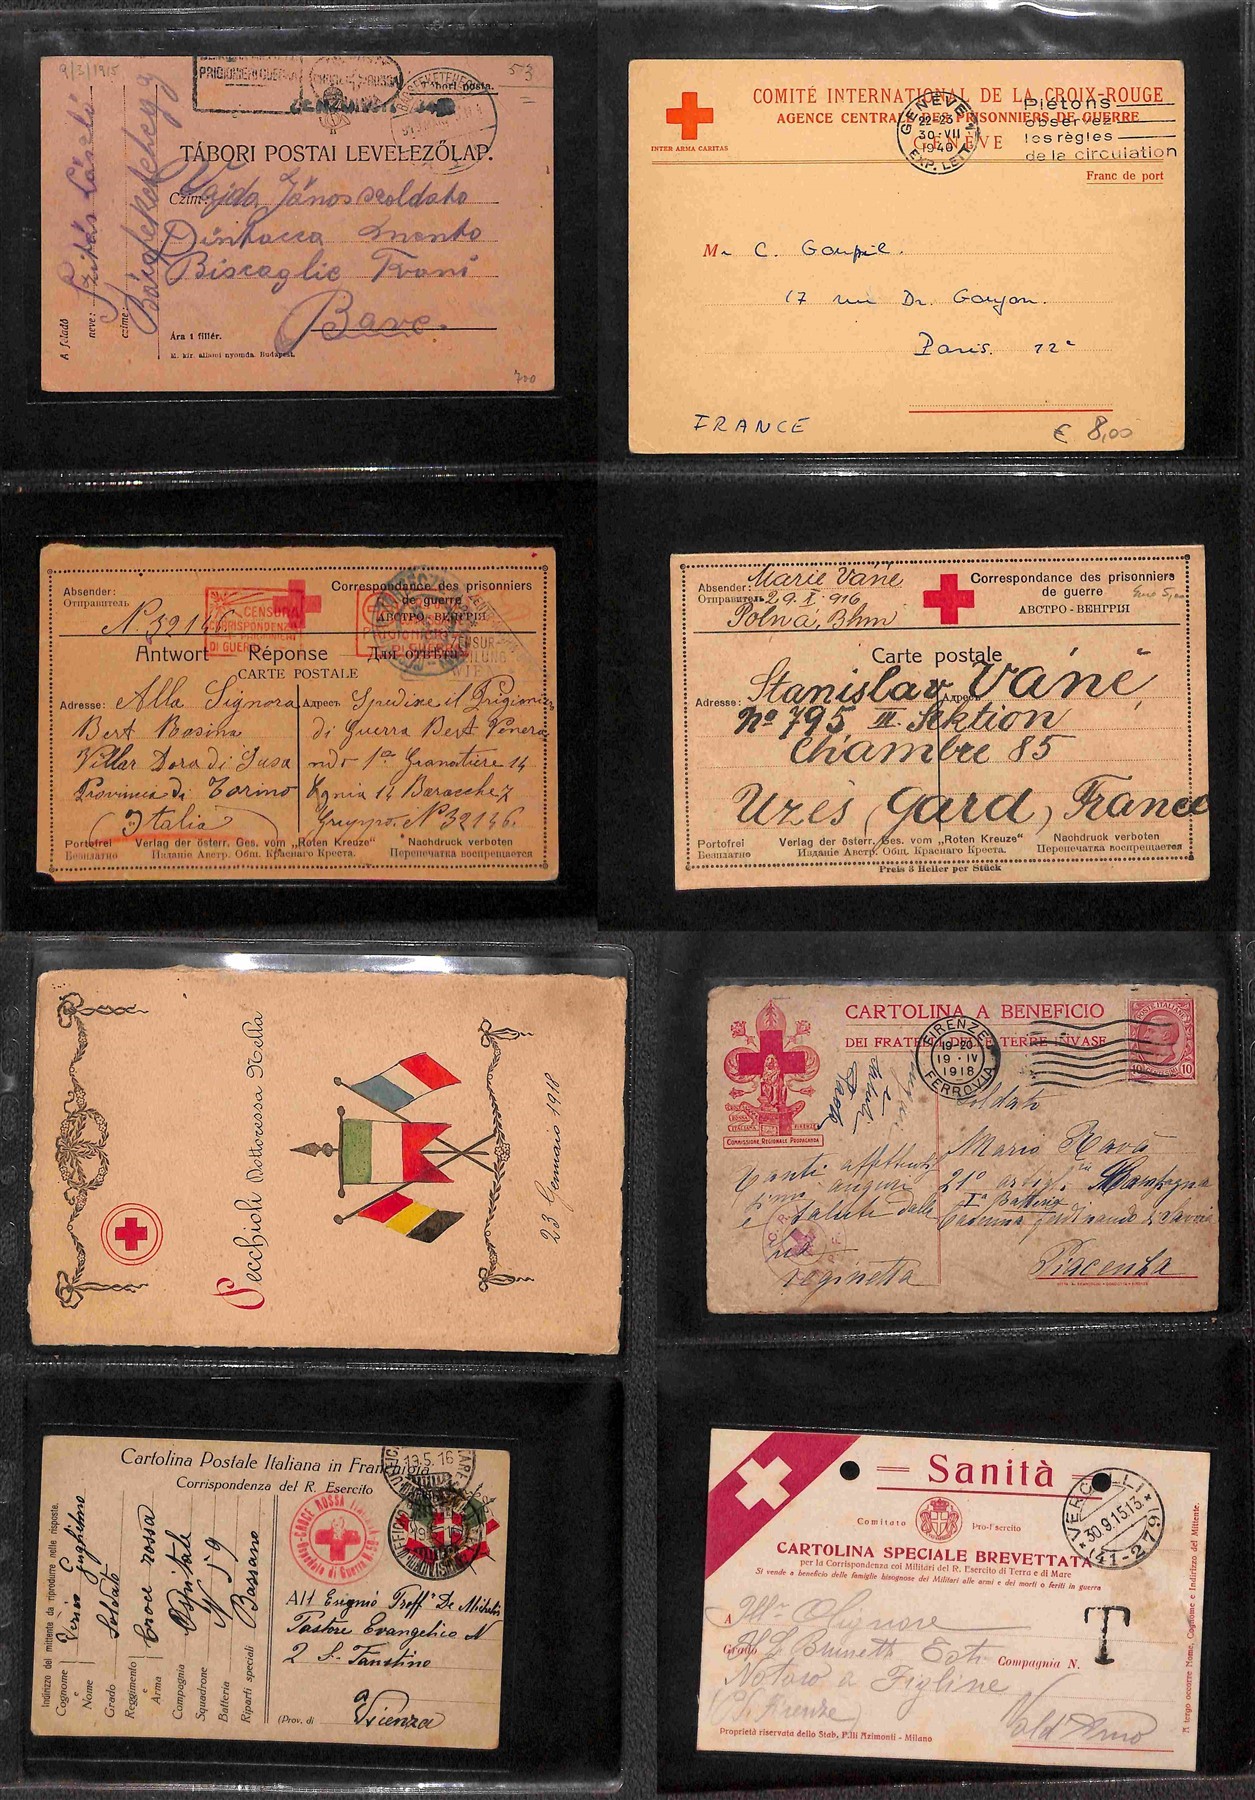 9/3/1915
53
PRIGIONIERI GUERRA
Tábori posta.
TÁBORI POSTAI LEVELEZŐLAP.
Czím: Vajda János soldato
Biscaglie Trani
A feladó
neve: Szitás László
czíme:
Ára 1 fillér.
M. kir. állami nyomda. Budapest.
700
COMITÉ INTERNATIONAL DE LA CROIX-ROUGE
AGENCE CENTRALE DES PRISONNIERS DE GUERRE
GENÈVE
INTER ARMA CARITAS
GENÈVE 1
22-23
30·VII
1940
EXP. LETT.
Piétons
observez
les règles
de la circulation
Franc de port
Mr C. Goupil.
17 rue Dr. Goujon.
Paris. 12e
FRANCE
€ 8,00
Absender:
Отправитель
N. 32146
CENSURA
CORRISPONDENZA
PRIGIONIERI
DI GUERRA
Correspondance des prisonniers
de guerre
АВСТРО-ВЕНГРІЯ
Antwort Réponse Для отвѣта
CARTE POSTALE
Adresse: Alla Signora
Bert Rosina
Villar Dora di Susa
Provincia di Torino
(Italia)
Адресъ Spedisce il Prigionier
di Guerra Bert Venera
ndo 1ª Granatiere 14
Gruppo. N° 32146.
Portofrei Verlag der österr. Ges. vom „Roten Kreuze“ Nachdruck verboten
Безплатно Изданіе Австр. Общ. Краснаго Креста. Перепечатка воспрещается
Absender: Marie Váně
Отправитель 29. X. 916
Polná, Bhm
Correspondance des prisonniers
de guerre
АВСТРО-ВЕНГРІЯ
Carte postale
Adresse: Адресъ
Stanislav Váně
No 795 III. Sektion
Chambre 85
Uzès (Gard) France
Portofrei Verlag der österr. Ges. vom „Roten Kreuze“ Nachdruck verboten
Безплатно Изданіе Австр. Общ. Краснаго Креста. Перепечатка воспрещается
Preis 3 Heller per Stück
Secchioli Dottoressa Nella
23 Gennaio 1918
CARTOLINA A BENEFICIO
DEI FRATELLI DELLE TERRE INVASE
FIRENZE
19-20
19·IV
1918
FERROVIA
POSTE ITALIANE
10 10
COMMISSIONE REGIONALE PROPAGANDA
Soldato
Mario Ravà
21° artigl. da Campagna
Ia Batteria
Caserma Ferdinando di Savoia
Piacenza
Tanti affettuosis
simi auguri
e saluti dalla
tua
Reginetta
Cartolina Postale Italiana in Franchigia
Corrispondenza del R. Esercito
13.5.16
CROCE ROSSA ITALIANA
Ospedale di Guerra N. 59
Indirizzo del mittente da riprodurre nelle risposte.
Cognome
e
Nome
Grado Soldato
Reggimento
e
Arma Croce rossa
Compagnia Ospitale
Squadrone N° 59
Batteria
Riparti speciali Bassano
All Esignio Proff° De Michelis
Pastore Evangelico N
2 S. Faustino
a
(Prov. di Vicenza
Sanità
Comitato Pro-Esercito
CARTOLINA SPECIALE BREVETTATA
per la Corrispondenza coi Militari del R. Esercito di Terra e di Mare
Si vende a beneficio delle famiglie bisognose dei Militari alle armi e dei morti o feriti in guerra
VERCELLI
30.9.15.13
(41-279)
T
A Ill. Signore
Grado Compagnia N.
Notaro a Figline
(P. Firenze)
Vald'Arno
Proprietà riservata dello Stab. F.lli Azimonti - Milano
A tergo occorre Nome, Cognome e Indirizzo del Mittente.